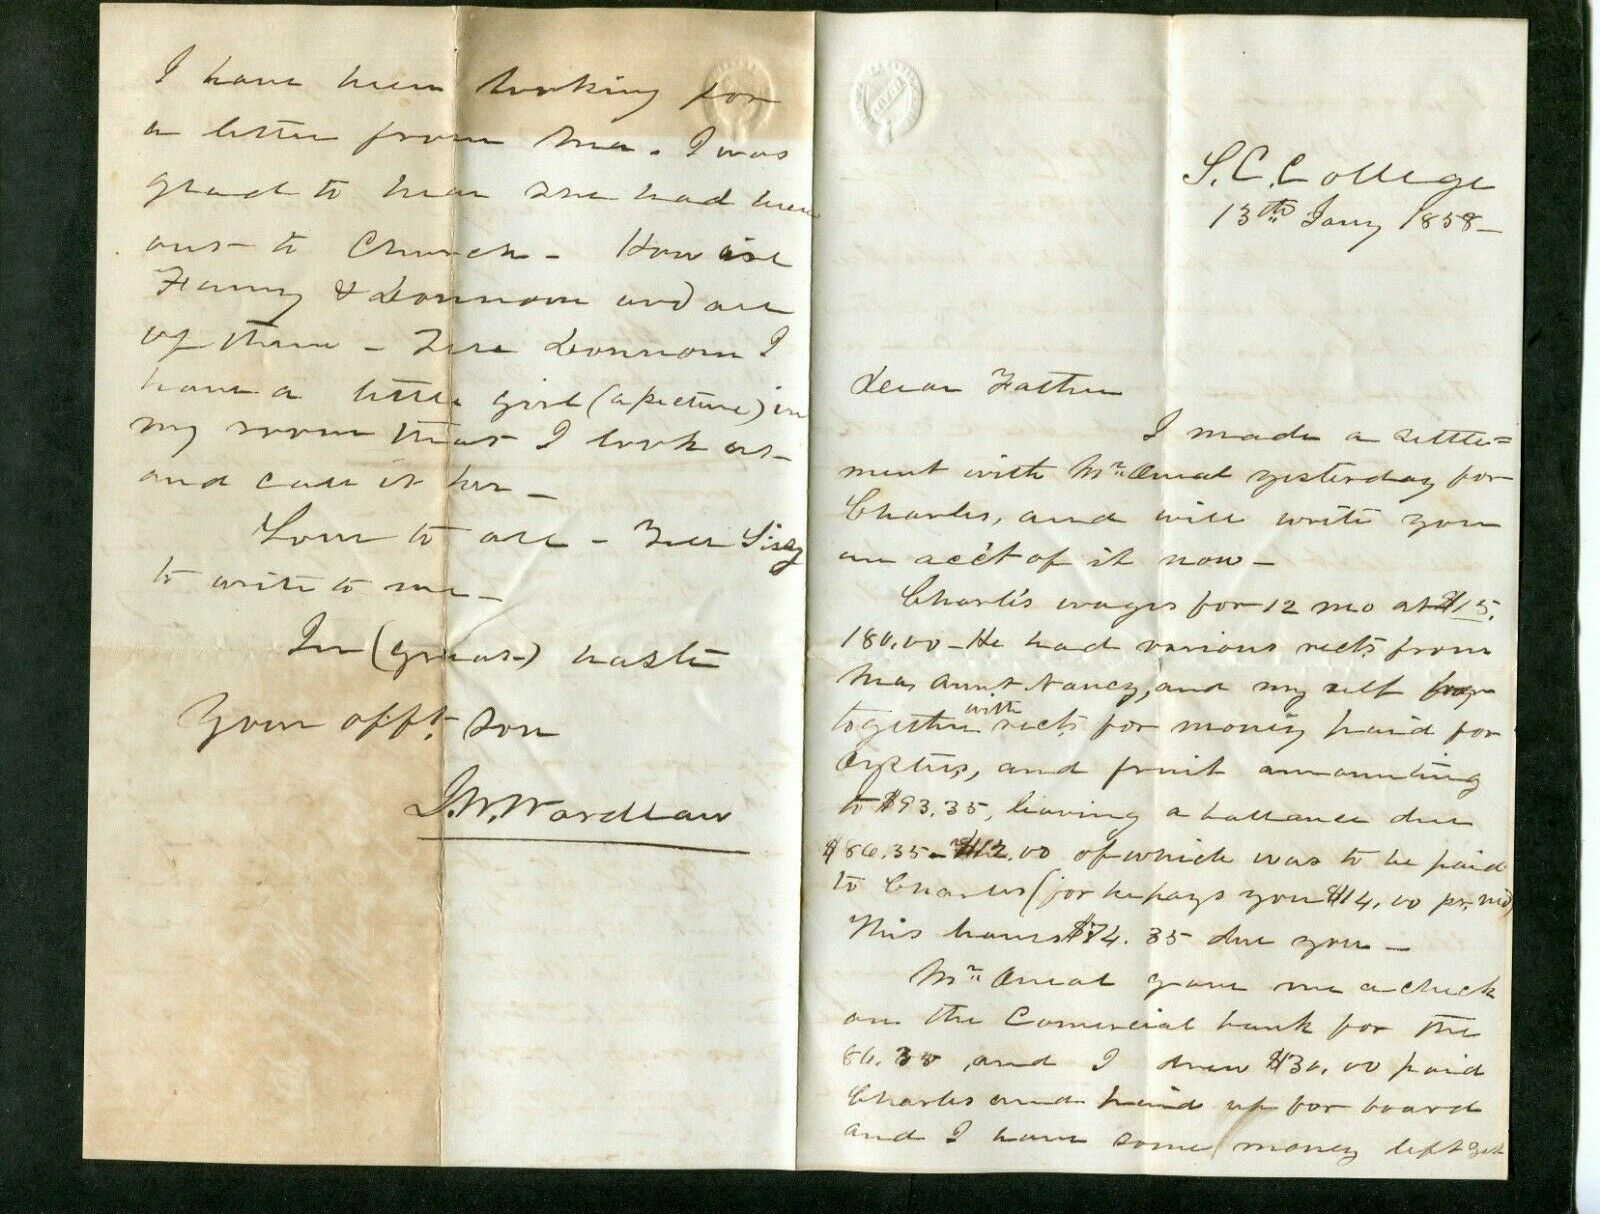 S. C. College
13th Jany 1858 –
Dear Father
I made a settle=
ment with Mr. Oneal yesterday for
Charles, and will write you
an acc't of it now –
Charles wages for 12 mo at $15.
180.00 – He had various rects from
Ma, Aunt Nancy, and my self
together with rects for money paid for
Oysters, and fruit amounting
to $93.35, leaving a ballance due
$86.35 – $12.00 of which was to be paid
to Charles (for he pays you $14.00 pr. mo)
This leaves $74.35 due you –
Mr. Oneal gave me a check
on the Comercial bank for the
86.35, and I drew $30.00 paid
Charles and paid up for board
and I have some money left yet
I have been looking for
a letter from Ma. I was
glad to hear she had been
out to Church – How is
Fanny & Donnom and all
of them – Tell Donnom I
have a little girl (a picture) in
my room that I look at
and call it her –
Love to all – Tell Sissy
to write to me –
In (great) haste
Your afft. son
J. W. Wardlaw